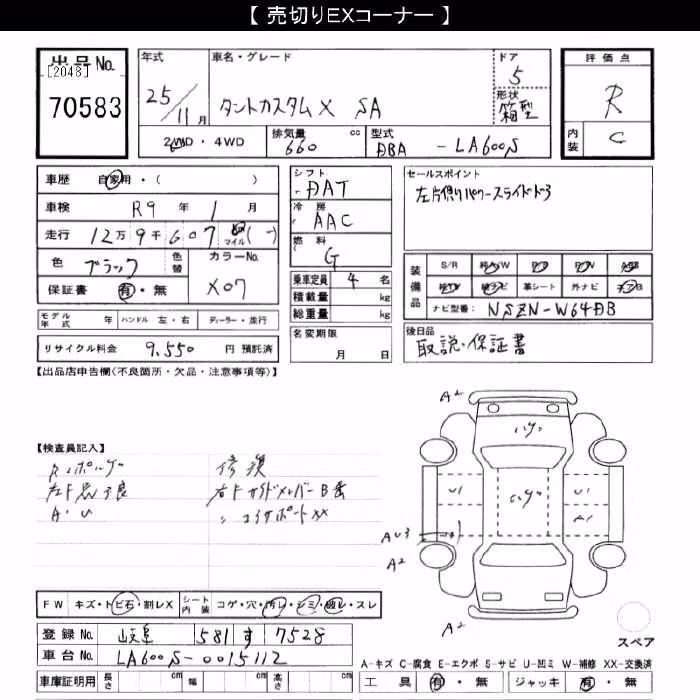 【 売切りEXコーナー 】
出品No.
[2048]
70583
年式 25/11月
車名・グレード タントカスタムX SA
ドア 5
形状 箱型
評価点 R
内装 C
2WD・4WD
排気量 660 cc
型式 DBA -LA600S
車歴 自家用・( )
車検 R9年 1月
走行 12万9千607 km マイル(-)
色 ブラック 色替
カラーNo. X07
保証書 有・無
シフト DAT
冷房 AAC
燃料 G
乗車定員 4名
積載量 kg
総重量 kg
名変期限 月 日
セールスポイント
左片側パワースライドドア
装備品
S/R
革シート 外ナビ
ナビ型番: NSZN-W64DB
後日品
取説・保証書
モデル年式 年 ハンドル 左・右 ディーラー・並行
リサイクル料金 9,550 円 預託済
【出品店申告欄(不良箇所・欠品・注意事項等)】
【検査員記入】
修復
A・U
A2
U1
U1
A1
AU3
A2
A2
スペア
FW キズ・トビ石・割レX
シート内装 コゲ・穴・汚レ・シミ・破レ・スレ
登録No. 岐阜 581 す 7528
車台No. LA600S-0015112
車庫証明用 長さ cm 幅 cm 高さ cm
A-キズ C-腐食 E-エクボ S-サビ U-凹ミ W-補修 XX-交換済
工具 有・無 ジャッキ 有・無